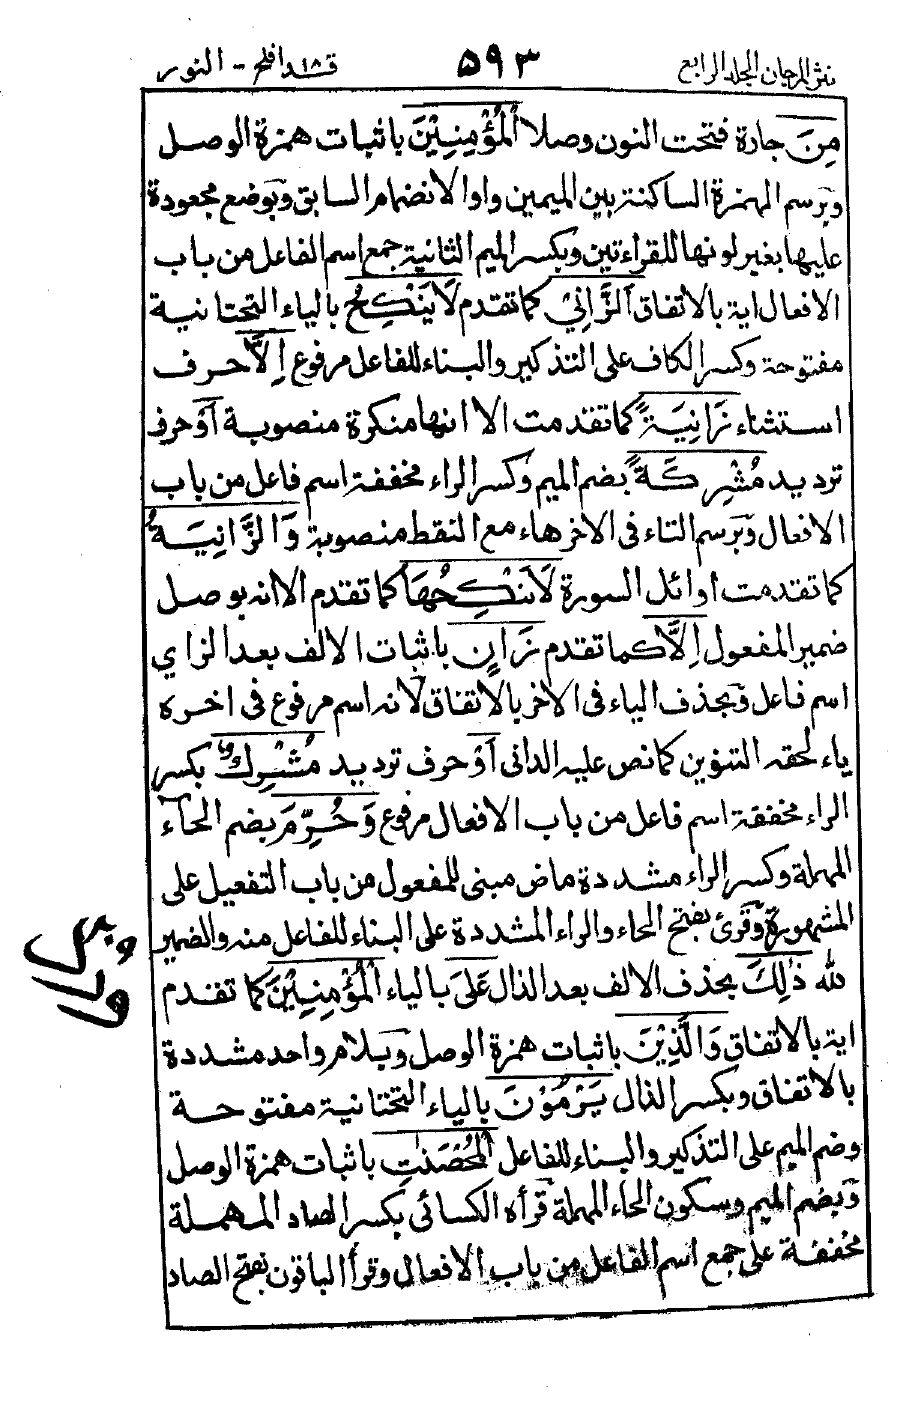 نثر المرجان الجلد الرابع ٥٩٣ قد افلح ١٨ - النور
مِنَ جارة فتحت النون وصلا الْمُؤْمِنِيْنَ باثبات همزة الوصل
وبرسم الهمزة الساكنة بين الميمين واوا لانضمام السابق وبوضع مجعودة
عليها بغير لونها للقراءتين وبكسر الميم الثانية جمع اسم الفاعل من باب
الافعال اية بالاتفاق اَلزَّانِيْ كما تقدم لَا يَنْكِحُ بالياء التحتانية
مفتوحة وكسر الكاف على التذكير والبناء للفاعل مرفوع اِلَّا حرف
استثناء زَانِيَةً كما تقدمت الا انها منكرة منصوبة اَوْ حرف
ترديد مُشْرِكَةً بضم الميم وكسر الراء مخففة اسم فاعل من باب
الافعال وبرسم التاء فى الاخر هاء مع النقط منصوبة وَالزَّانِيَةُ
كما تقدمت اوائل السورة لَا يَنْكِحُهَا كما تقدم الا انه بوصل
ضمير المفعول اِلَّا كما تقدم زَانٍ باثبات الالف بعد الزاي
اسم فاعل وبحذف الياء فى الاخر بالاتفاق لانه اسم مرفوع فى اخره
ياء لحقه التنوين كما نص عليه الدانى اَوْ حرف ترديد مُشْرِكٌ بكسر
الراء مخففة اسم فاعل من باب الافعال مرفوع وَحُرِّمَ بضم الحاء
المهملة وكسر الراء مشددة ماض مبنى للمفعول من باب التفعيل على
المشهورة وقرئ بفتح الحاء والراء المشددة على البناء للفاعل منه والضمير
لله ذٰلِكَ بحذف الالف بعد الذال عَلَى بالياء الْمُؤْمِنِيْنَ كما تقدم
اية بالاتفاق وَالَّذِيْنَ باثبات همزة الوصل وبلام واحد مشددة
بالاتفاق وبكسر الذال يَرْمُوْنَ بالياء التحتانية مفتوحة
وضم الميم على التذكير والبناء للفاعل الْمُحْصَنٰتِ باثبات همزة الوصل
وبضم الميم وسكون الحاء المهملة قرأه الكسائى بكسر الصاد المهملة
مخففة على جمع اسم الفاعل من باب الافعال وقرأ الباقون بفتح الصاد